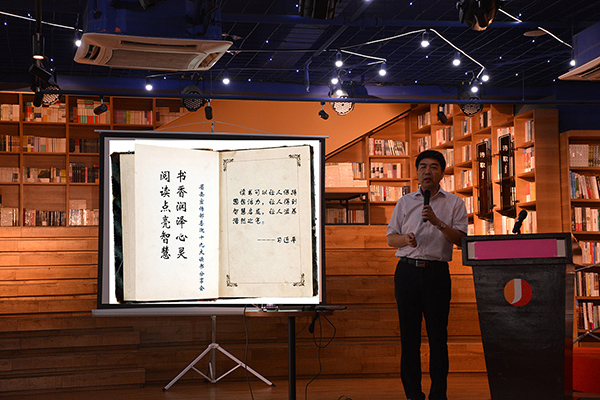 书香润泽心灵
阅读点亮智慧
省委宣传部喜迎十九大读书分享会
读书可以让人保持
思想活力，让人得到
智慧启发，让人滋养
浩然之气
————习近平